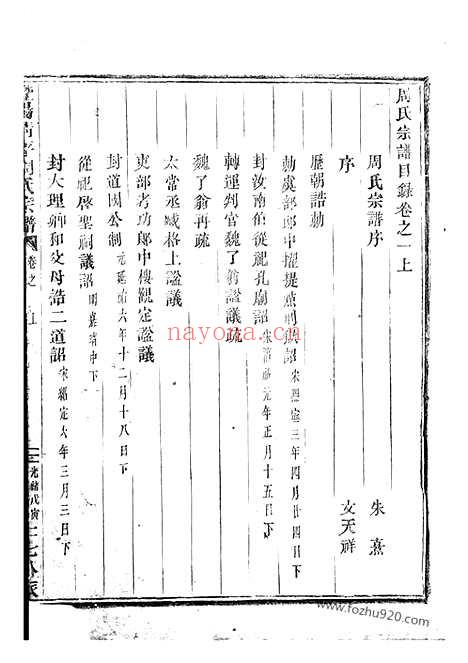 周氏宗譜目錄卷之一上
周氏宗譜序 朱熹
序 文天祥
歷朝誥勅
勅虞部郎中擢提點刑獄詔 宋熙寧三年四月廿四日下
封汝南伯從祀孔廟詔 宋淳祐元年正月十五日下
轉運判官魏了翁謚議疏
魏了翁再疏
太常丞臧格上謚議
吏部考功郎中樓觀定謚議
封道國公制 元延祐六年十二月十八日下
從祀啓聖祠議詔 明嘉靖中下
封大理卿和父母誥二道詔 宋紹定六年三月三日下
周氏宗譜
卷之一上
光緒戊寅
nayona.cn
www.fozhu920.com